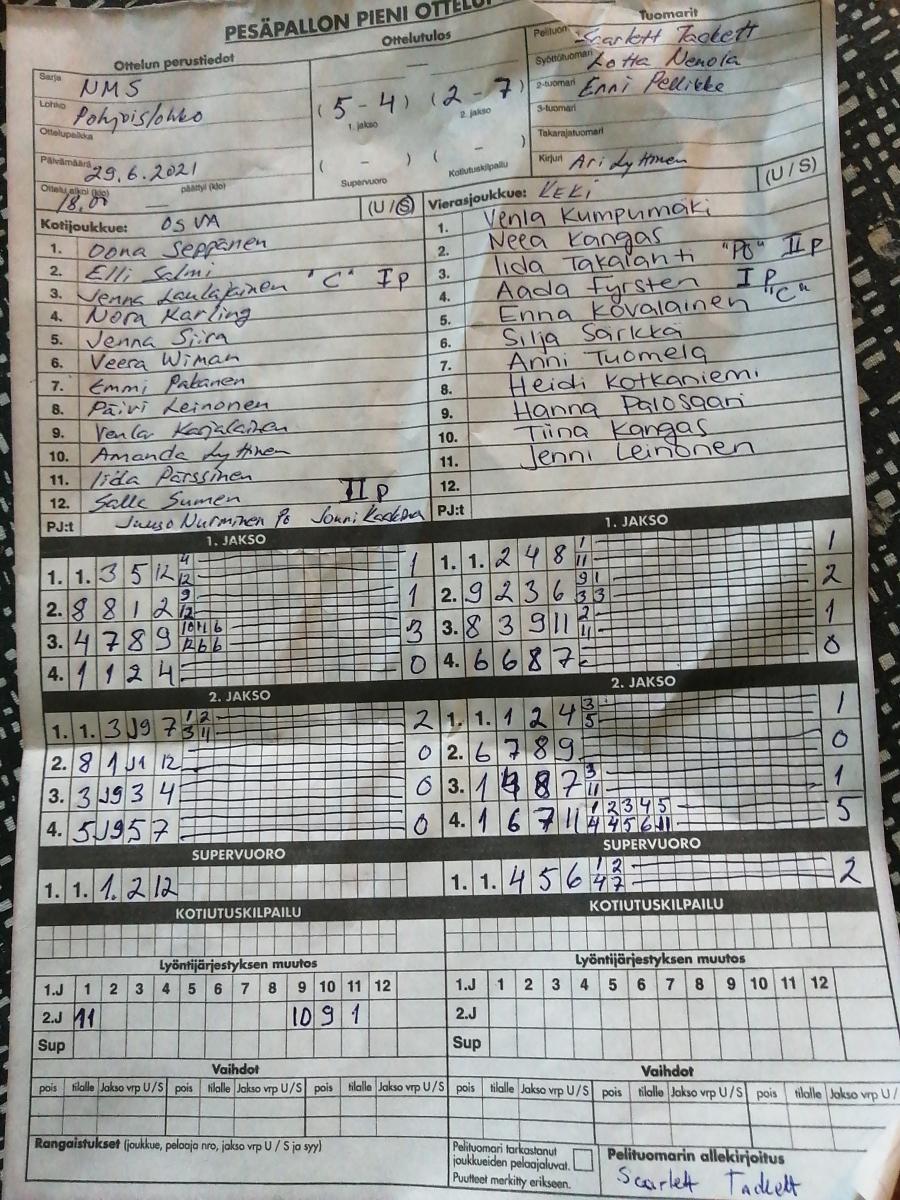 PESÄPALLON PIENI
Ottelun perustiedot
Ottelutulos
Tuomarit
Sarja NMS
Lohko Pohjoislohko
Ottelupaikka
Päivämäärä 29.6.2021
Ottelu alkoi (klo) 18.00 päättyi (klo)
(5 - 4) (2 - 7)
1. jakso 2. jakso
( - ) ( - )
Supervuoro Kotiutuskilpailu
Pelituom. Scarlett Tackett
Syöttötuomari Lotta Nenola
2-tuomari Enni Pellikke
3-tuomari
Takarajatuomari
Kirjuri Ari Lyttinen
Kotijoukkue: OSVA (U/S)
1. Oona Seppänen
2. Elli Salmi
3. Jenna Laulajainen "C" I p
4. Nora Karling
5. Jenna Siira
6. Veera Wiman
7. Emmi Pakanen
8. Päivi Leinonen
9. Venla Karjalainen
10. Amanda Lyttinen
11. Iida Pärssinen
12. Salla Sumen II p
PJ:t Juuso Nurminen PO Jouni
Vierasjoukkue: KEKI (U/S)
1. Venla Kumpumäki
2. Neea Kangas
3. Iida Takalahti "PÖ" II p
4. Aada Fyrsten I p
5. Enna Kovalainen "C"
6. Silja Särkkä
7. Anni Tuomela
8. Heidi Kotkaniemi
9. Hanna Palosaari
10. Tiina Kangas
11. Jenni Leinonen
12.
PJ:t
1. JAKSO
1. 1. 3 5 12 4 12 1
2. 8 8 1 2 9 12 1
3. 4 7 8 9 10 11 6 12 6 6 3
4. 1 1 2 4 0
1. JAKSO
1. 1. 2 4 8 1 11 1
2. 9 2 3 6 9 1 3 3 2
3. 8 3 9 11 2 11 1
4. 6 6 8 7 0
2. JAKSO
1. 1. 3 J9 7 1 2 3 11 2
2. 8 1 J1 12 0
3. 3 J9 3 4 0
4. 5 J9 5 7 0
2. JAKSO
1. 1. 1 2 4 3 5 1
2. 6 7 8 9 0
3. 1 8 7 3 11 1
4. 1 6 7 11 1 2 3 4 5 4 4 5 6 11 5
SUPERVUORO
1. 1. 1. 2 12
SUPERVUORO
1. 1. 4 5 6 1 2 4 7 2
KOTIUTUSKILPAILU
KOTIUTUSKILPAILU
Lyöntijärjestyksen muutos
1.J 1 2 3 4 5 6 7 8 9 10 11 12
2.J 11 10 9 1
Sup
Lyöntijärjestyksen muutos
1.J 1 2 3 4 5 6 7 8 9 10 11 12
2.J
Sup
Vaihdot
pois tilalle Jakso vrp U/S pois tilalle Jakso vrp U/S pois tilalle Jakso vrp U/S
Vaihdot
pois tilalle Jakso vrp U/S pois tilalle Jakso vrp U/S pois tilalle Jakso vrp U/
Rangaistukset (joukkue, pelaaja nro, jakso vrp U / S ja syy)
Pelituomari tarkastanut
joukkueiden pelaajaluvat.
Puutteet merkitty erikseen.
Pelituomarin allekirjoitus
Scarlett Tackett